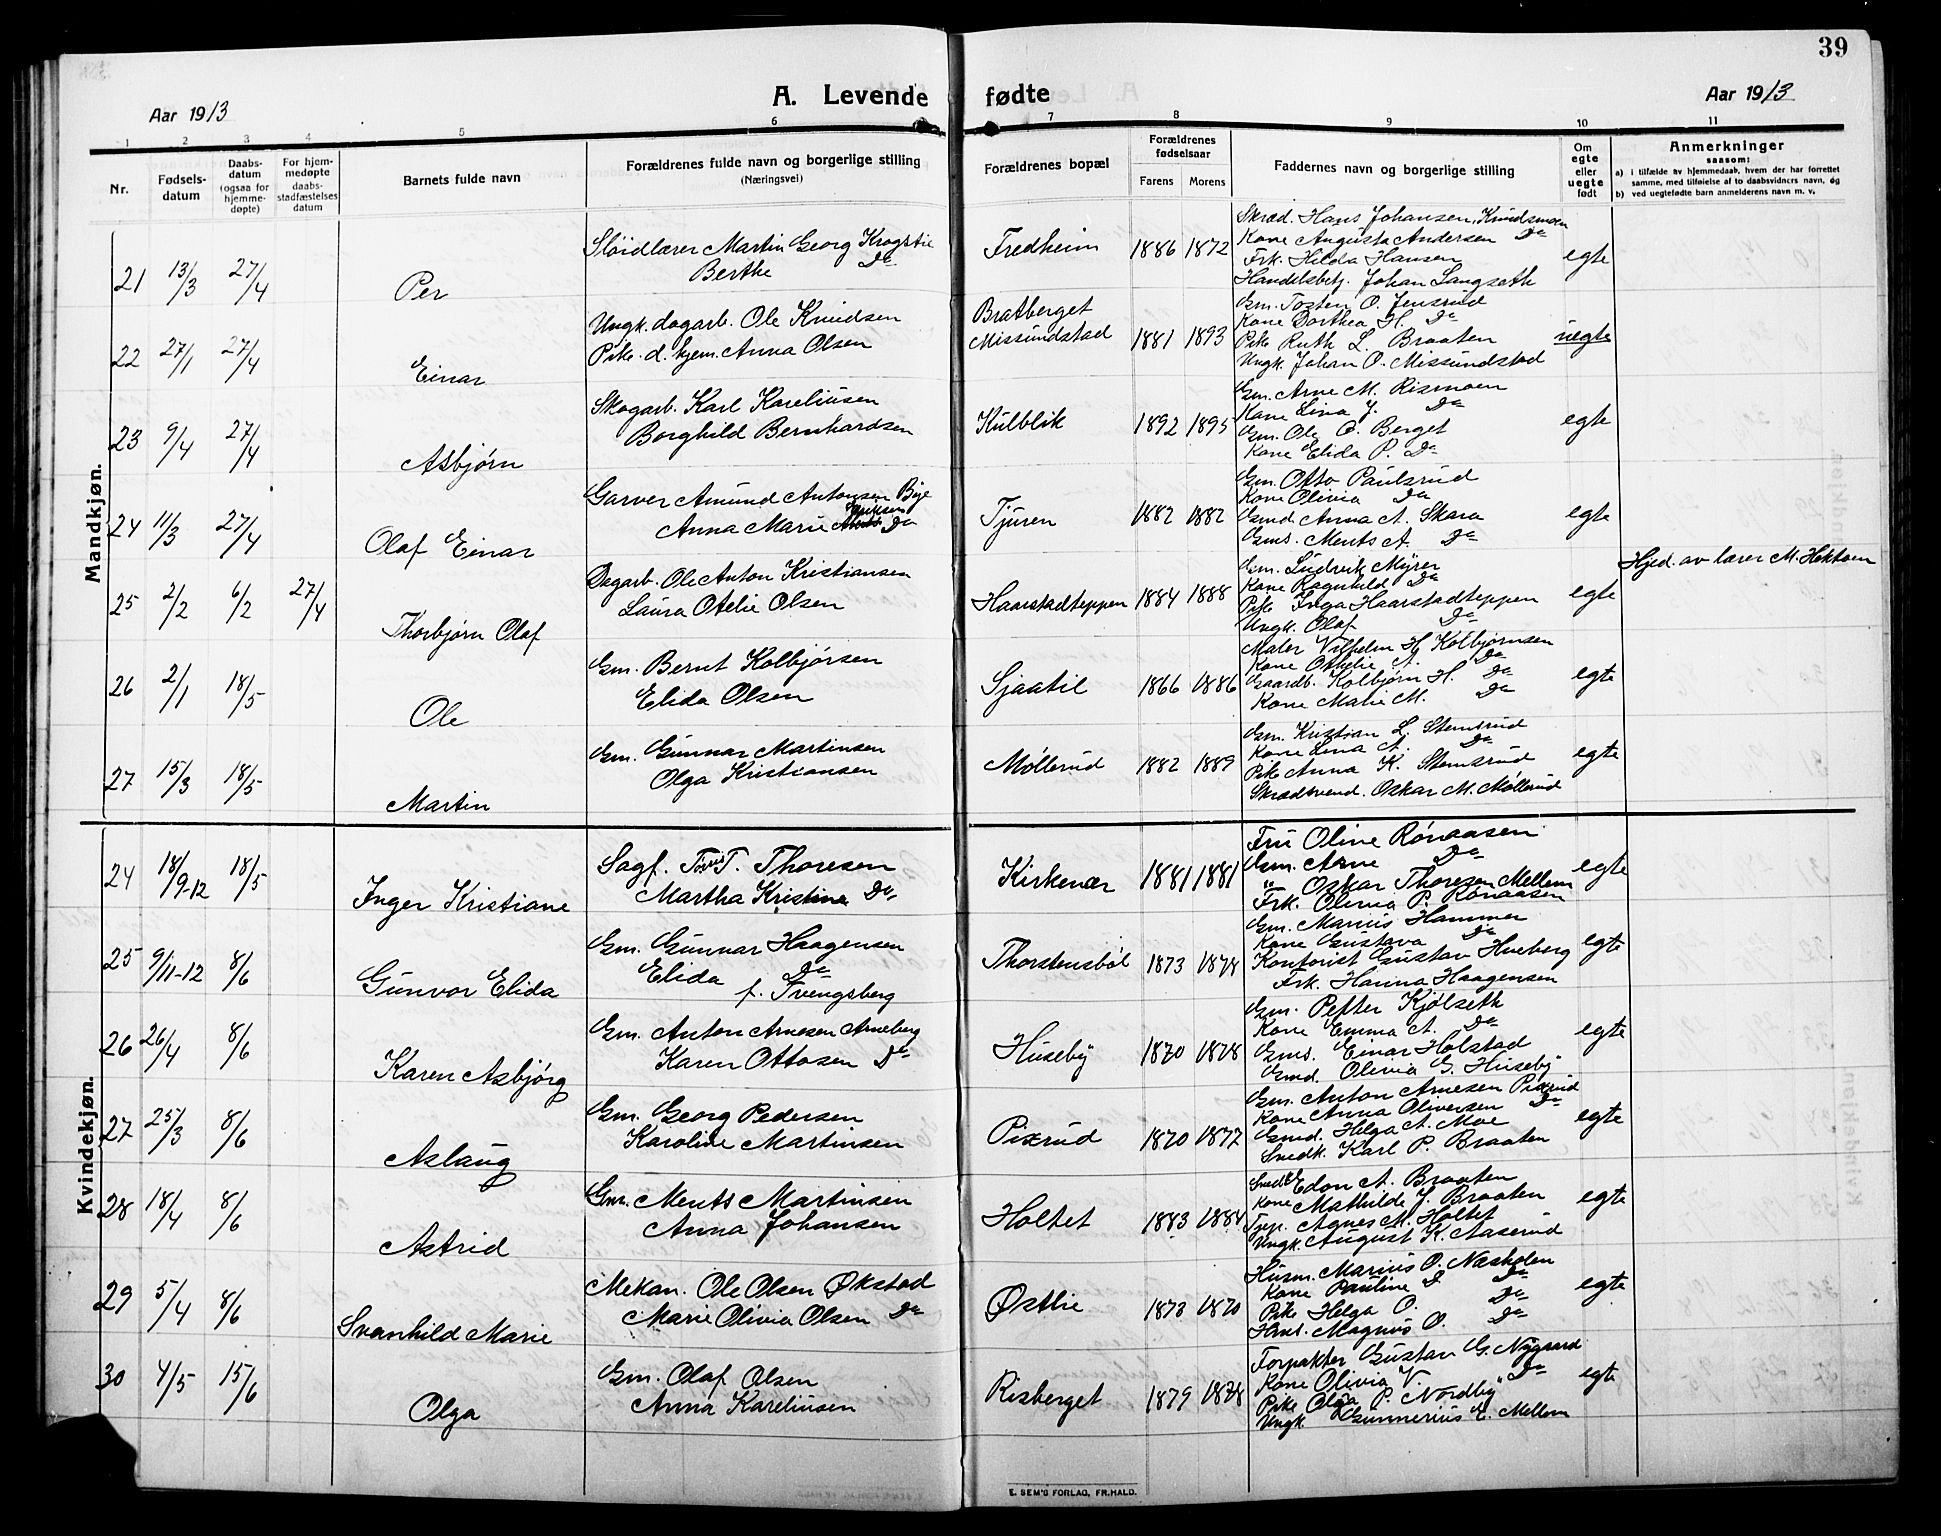 39
A. Levende fødte
Aar 1913
Aar 1913
1 2 3 4 5 6 7 8 9 10 11
Nr.
Fødsels-
datum
Daabs-
datum
(ogsaa for
hjemme-
døpte)
For hjem-
medøpte
daabs-
stadfæstelses
datum
Barnets fulde navn
Forældrenes fulde navn og borgerlige stilling
(Næringsvei)
Forældrenes bopæl
Forældrenes
fødselsaar
Farens Morens
Faddernes navn og borgerlige stilling
Om
egte
eller
uegte
født
Anmerkninger
saasom:
a) i tilfælde av hjemmedaab, hvem der har forrettet
samme, med tilføielse af to daabsvidners navn, og
b) ved uegtefødte barn anmelderens navn m. v.
Mandkjøn.
21 13/3 27/4 Per
Sløidlærer Martin Georg Krogstie
Berthe Do
Fredheim 1886 1872
Skræd. Hans Johansen, Knudsmoen
Kone Augusta Andersen Do
Frk. Hilda Hansen
Handelsbetj. Johan Langseth
egte
22 27/1 27/4 Einar
Ungk. dagarb. Ole Knudsen
Pike d. hjem. Anna Olsen
Bratberget
Missundstad 1881 1893
Gm. Tosten O. Jensrud
Kone Dorthea H. Do
Pike Ruth L. Braaten
Ungk. Johan O. Missundstad
uegte
23 9/4 27/4 Asbjørn
Skogarb. Karl Kareliusen
Borghild Bernhardsen
Kulblik 1892 1895
Gm. Arne M. Rismoen
Kone Lina J. Do
Gm. Ole O. Berget
Kone Elida P. Do
egte
24 11/3 27/4 Olaf Einar
Garver Amund Antonsen Bye
Anna Marie Do
Tjuren 1882 1882
Gm. Otto Paulsrud
Kone Olivia Do
Gmd. Anna A. Skara
Gms. Ments A. Do
egte
25 2/2 6/2 27/4 Thorbjørn Olaf
Dagarb. Ole Anton Kristiansen
Laura Otelie Olsen
Haarstadteppen 1884 1888
Gm. Ludvik Myrer
Kone Ragnhild Do
Pike Inga Haarstadteppen
Ungk. Olaf Do
egte
Hjed. av lærer M. Hoktoen
26 2/1 18/5 Ole
Gm. Bernt Kolbjørsen
Elida Olsen
Sjaatil 1866 1886
Maler Vilhelm H. Kolbjørnsen
Kone Othelie A. Do
Gaardb. Kolbjørn H. Do
Kone Matie M. Do
egte
27 15/3 18/5 Martin
Gm. Gunnar Martinsen
Olga Kristiansen
Møllerud 1882 1889
Gm. Kristian L. Stemsrud
Kone Lina A. Do
Pike Anna K. Stemsrud
Skrædsvend. Oskar M. Møllerud
egte
Kvindekjøn.
24 18/9-12 18/5 Inger Kristiane
Sagf. T. Thoresen
Martha Kristine Do
Kirkenær 1881 1881
Fru Oline Rønaasen
Gm. Arne Do
" Oskar Thoresen Mellem
Frk. Olivia P. Rønaasen
egte
25 9/11-12 8/6 Gunvor Elida
Gm. Gunnar Haagensen
Elida Do
f. Tvengsberg
Thorstensbøl 1873 1878
Gm. Marius Hammer
Kone Gustava Do
Kontorist Gustav Hveberg
Frk. Hanna Haagensen
egte
26 26/4 8/6 Karen Asbjørg
Gm. Anton Arnesen Arneberg
Karen Ottosen Do
Huseby 1870 1878
Gm. Petter Kjølseth
Kone Emma A. Do
Gms. Einar Holstad
Gmd. Olivia G. Huseby
egte
27 25/3 8/6 Aslaug
Gm. Georg Pedersen
Karoline Martinsen
Pixrud 1870 1877
Gm. Anton Arnesen Pixrud
Kone Anna Oliversen Do
Gmd. Helga A. Moe
Snedk. Karl P. Braaten
egte
28 18/4 8/6 Astrid
Gm. Ments Martinsen
Anna Johansen
Holtet 1883 1884
Snedk. Edon A. Braaten
Kone Mathilde J. Braaten
Tjep. Agnes M. Holtet
Ungk. August K. Aaserud
egte
29 5/4 8/6 Svanhild Marie
Mekan. Ole Olsen Økstad
Marie Olivia Olsen Do
Østlie 1873 1870
Husm. Marius O. Næsholen
Kone Pauline Do
Pike Helga O. Do
Hms. Magnus O. Do
egte
30 4/5 15/6 Olga
Gm. Olaf Olsen
Anna Kareliusen
Risberget 1879 1878
Forpakter Gustav G. Nygaard
Kone Olivia V. Do
Pike Olga P. Nordby
Ungk. Gunnerius E. Mellem
egte
E. SEM'S FORLAG, FR.HALD.